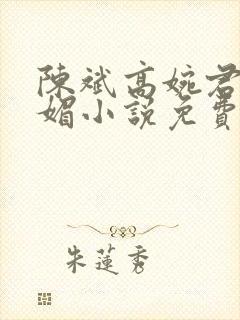 陳斌高婉君
媚小說免費
朱蓮秀